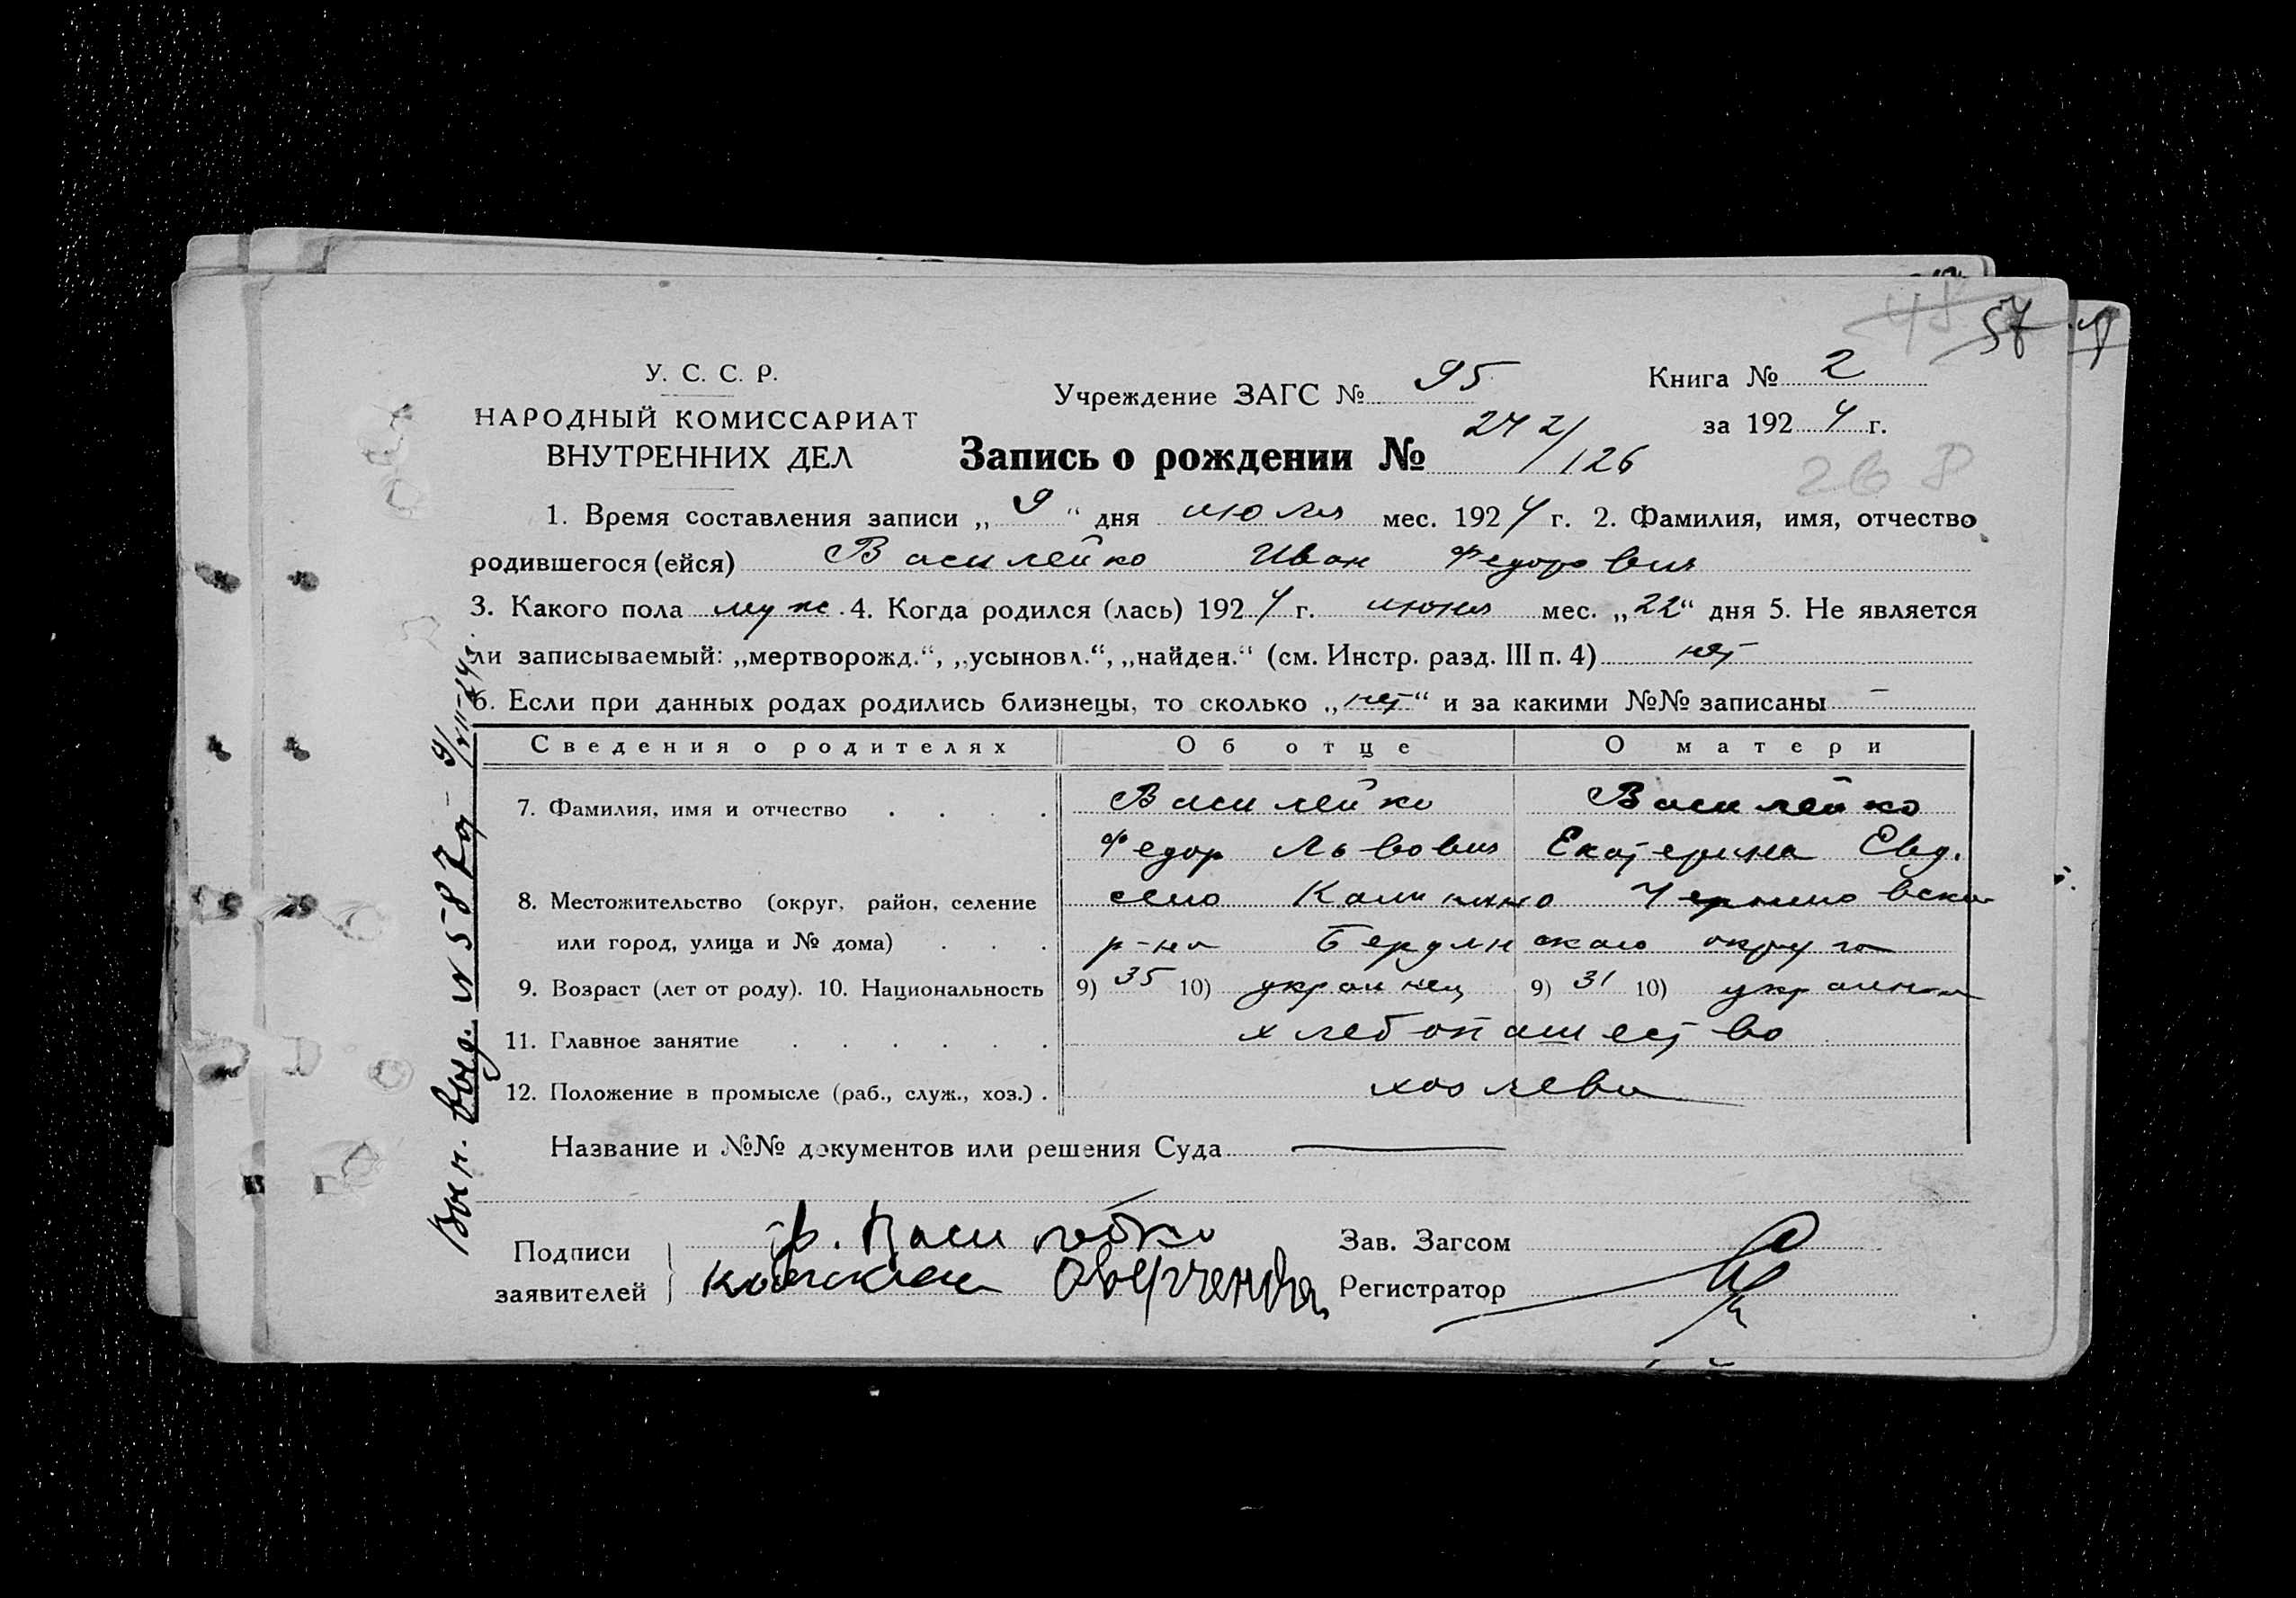 45 57
У. С. С. Р.
НАРОДНЫЙ КОМИССАРИАТ
ВНУТРЕННИХ ДЕЛ
Учреждение ЗАГС № 95
Книга № 2
за 1924 г.
Запись о рождении № 242/126
268
1. Время составления записи „9“ дня июля мес. 1924 г. 2. Фамилия, имя, отчество
родившегося (ейся) Василейко Иван Федорович
3. Какого пола муж. 4. Когда родился (лась) 1924 г. июня мес. „22“ дня 5. Не является
ли записываемый: „мертворожд.“, „усыновл.“, „найден.“ (см. Инстр. разд. III п. 4) нет
6. Если при данных родах родились близнецы, то сколько „нет“ и за какими №№ записаны —
Сведения о родителях Об отце О матери
7. Фамилия, имя и отчество . . . . Василейко Василейко
Федор Львович Екатерина Евд.
8. Местожительство (округ, район, селение село Калинкино
или город, улица и № дома) . . . р-на Бердянского округа
9. Возраст (лет от роду). 10. Национальность 9) 35 10) украинец 9) 31 10) украинка
11. Главное занятие . . . . . . хлебопашество
12. Положение в промысле (раб., служ., хоз.) . хозяева
Название и №№ документов или решения Суда
Подписи
заявителей
Ф. Василейко
Зав. Загсом
Регистратор
Вып. выд. № 587